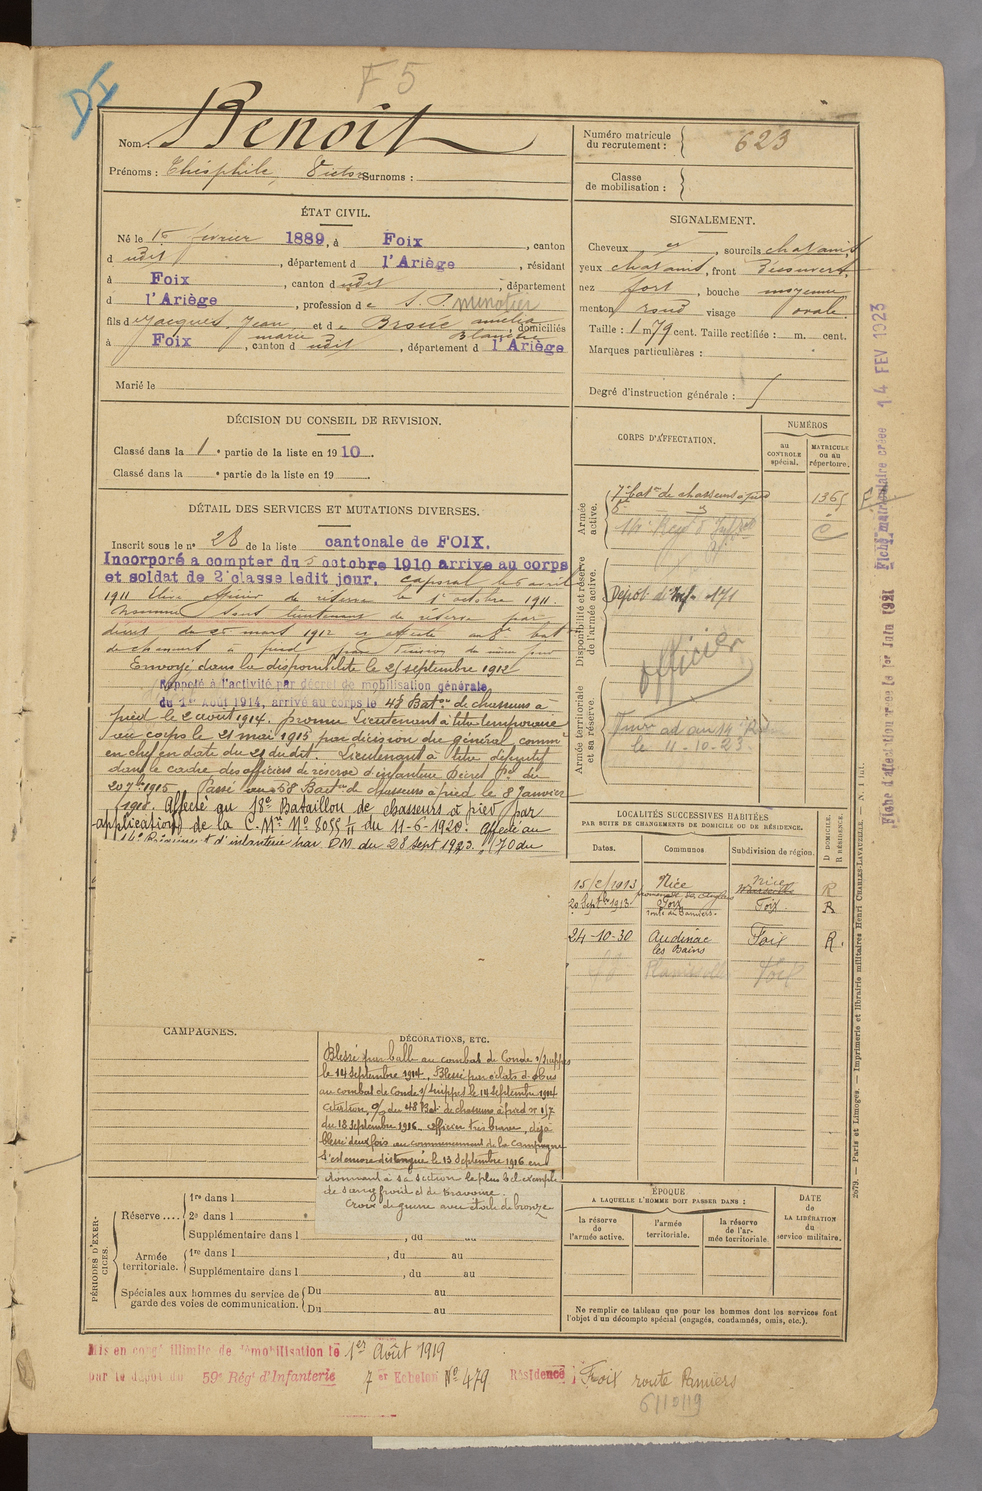 F 5
Nom Benoît
Prénoms : Théophile, Victor Surnoms :
Numéro matricule
du recrutement : 623
Classe
de mobilisation :
ÉTAT CIVIL.
Né le février 1889, à Foix, canton
d udit, département d l'Ariège, résidant
à Foix, canton d udit, département
d l'Ariège, profession de S. P. minotier
fils d Jacques, Jean marie et de Broué amélia Blanche, domiciliés
à Foix, canton d udit, département d l'Ariège
Marié le
SIGNALEMENT.
Cheveux et, sourcils chatains,
yeux chatains, front découvert,
nez fort, bouche moyenne
menton rond visage ovale.
Taille : 1 m 79 cent. Taille rectifiée : m. cent.
Marques particulières :
Degré d'instruction générale :
DÉCISION DU CONSEIL DE REVISION.
Classé dans la 1 e partie de la liste en 1910.
Classé dans la e partie de la liste en 19
DÉTAIL DES SERVICES ET MUTATIONS DIVERSES.
Inscrit sous le no 28 de la liste cantonale de FOIX.
Incorporé a compter du 5 octobre 1910 arrive au corps
et soldat de 2e classe ledit jour. caporal le 5 avril
1911 Elève officier de réserve le 1er octobre 1911.
Nommé sous lieutenant de réserve par
décret du 25 mars 1912 et affecté au bat
de chasseurs à pied
Envoyé dans la disponibilité le 25 septembre 1912
Rappelé à l'activité par décret de mobilisation générale
du 1er Août 1914, arrivé au corps le 48e Baton de chasseurs à
pied le 2 août 1914. promu Lieutenant à titre temporaire
au corps le 21 mai 1915 par décision du général commt
en chef en date du 21 dudit. Lieutenant à titre définitif
dans le cadre des officiers de réserve d'infanterie Décret Pel du
20 7bre 1915 Passé au 58 Baton de chasseurs à pied le 8 Janvier
1918. Affecté au 18e Bataillon de chasseurs à pied par
application de la C. Mle No 8055 1/11 du 11-6-1920. Affecté au
14e Régiment d'infanterie par DM. du 28 sept 1923.
CORPS D'AFFECTATION.
NUMÉROS
au
CONTROLE
spécial.
MATRICULE
ou au
répertoire.
Armée
active.
7e baton de chasseurs à pied 1365
14e Regt d'Infrie
Disponibilité et réserve
de l'armée active.
Dépôt d'Inf. 171
officier
Armée territoriale
et sa réserve.
le 11-10-23
LOCALITÉS SUCCESSIVES HABITÉES
PAR SUITE DE CHANGEMENTS DE DOMICILE OU DE RÉSIDENCE.
D DOMICILE.
R RÉSIDENCE.
Dates. Communes Subdivision de région.
15/2/1913 Nice promenade des anglais Nice R
20 Septbre 1913 Foix route de Pamiers. Foix R
24-10-30 Audinac les Bains Foix R.
Foix
CAMPAGNES.
DÉCORATIONS, ETC.
Blessé par balle au combat de Conde s/Suippes
le 14 septembre 1914. Blessé par éclats d'obus
au combat de Conde s/Suippes le 14 Septembre 1914
Citation, O/ du 48 Bat. de chasseurs à pied n 157
du 18 septembre 1916. officier très brave, déjà
blessé deux fois au commencement de la campagne
S'est encore distingué le 13 Septembre 1916 en
donnant à sa section le plus bel exemple
de sang froid et de bravoure.
Croix de guerre avec étoile de bronze
PÉRIODES D'EXER-
CICES.
Réserve ....
1re dans l
2e dans l
Supplémentaire dans l , du au
Armée
territoriale.
1re dans l , du au
Supplémentaire dans l , du au
Spéciales aux hommes du service de
garde des voies de communication.
Du au
Du au
ÉPOQUE
A LAQUELLE L'HOMME DOIT PASSER DANS :
la réserve
de
l'armée active.
l'armée
territoriale.
la réserve
de l'ar-
mée territoriale.
DATE
de
LA LIBÉRATION
du
service militaire.
Ne remplir ce tableau que pour les hommes dont les services font
l'objet d'un décompte spécial (engagés, condamnés, omis, etc.).
Mis en congé illimité de démobilisation le 1er Août 1919
par le dépôt du 59e Régt d'Infanterie 7 er Echelon No 479 Résidence : Foix route Pamiers
6/10/19
Fiche matriculaire créée 14 FEV 1923
Fiche d'affectation créée le 1er Juin 1921
2679. — Paris et Limoges. — Imprimerie et librairie militaires Henri CHARLES-LAVAUZELLE. — N. 1 int.